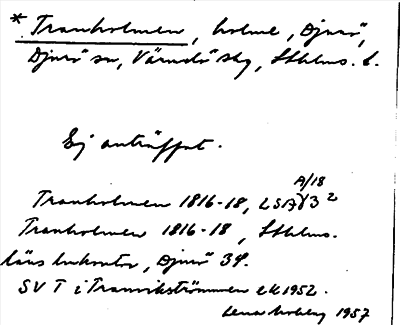 * Tranholmen, holme, Djurö,
Djurö sn, Värmdö skg, Sthlms. l.
Ej anträffat.
A/18
Tranholmen 1816-18, LSA γ3²
Tranholmen 1816-18, Sthlms.
läns lukontor, Djurö 34.
SV T i Tranvikströmmen ek 1952.
Lena 1957